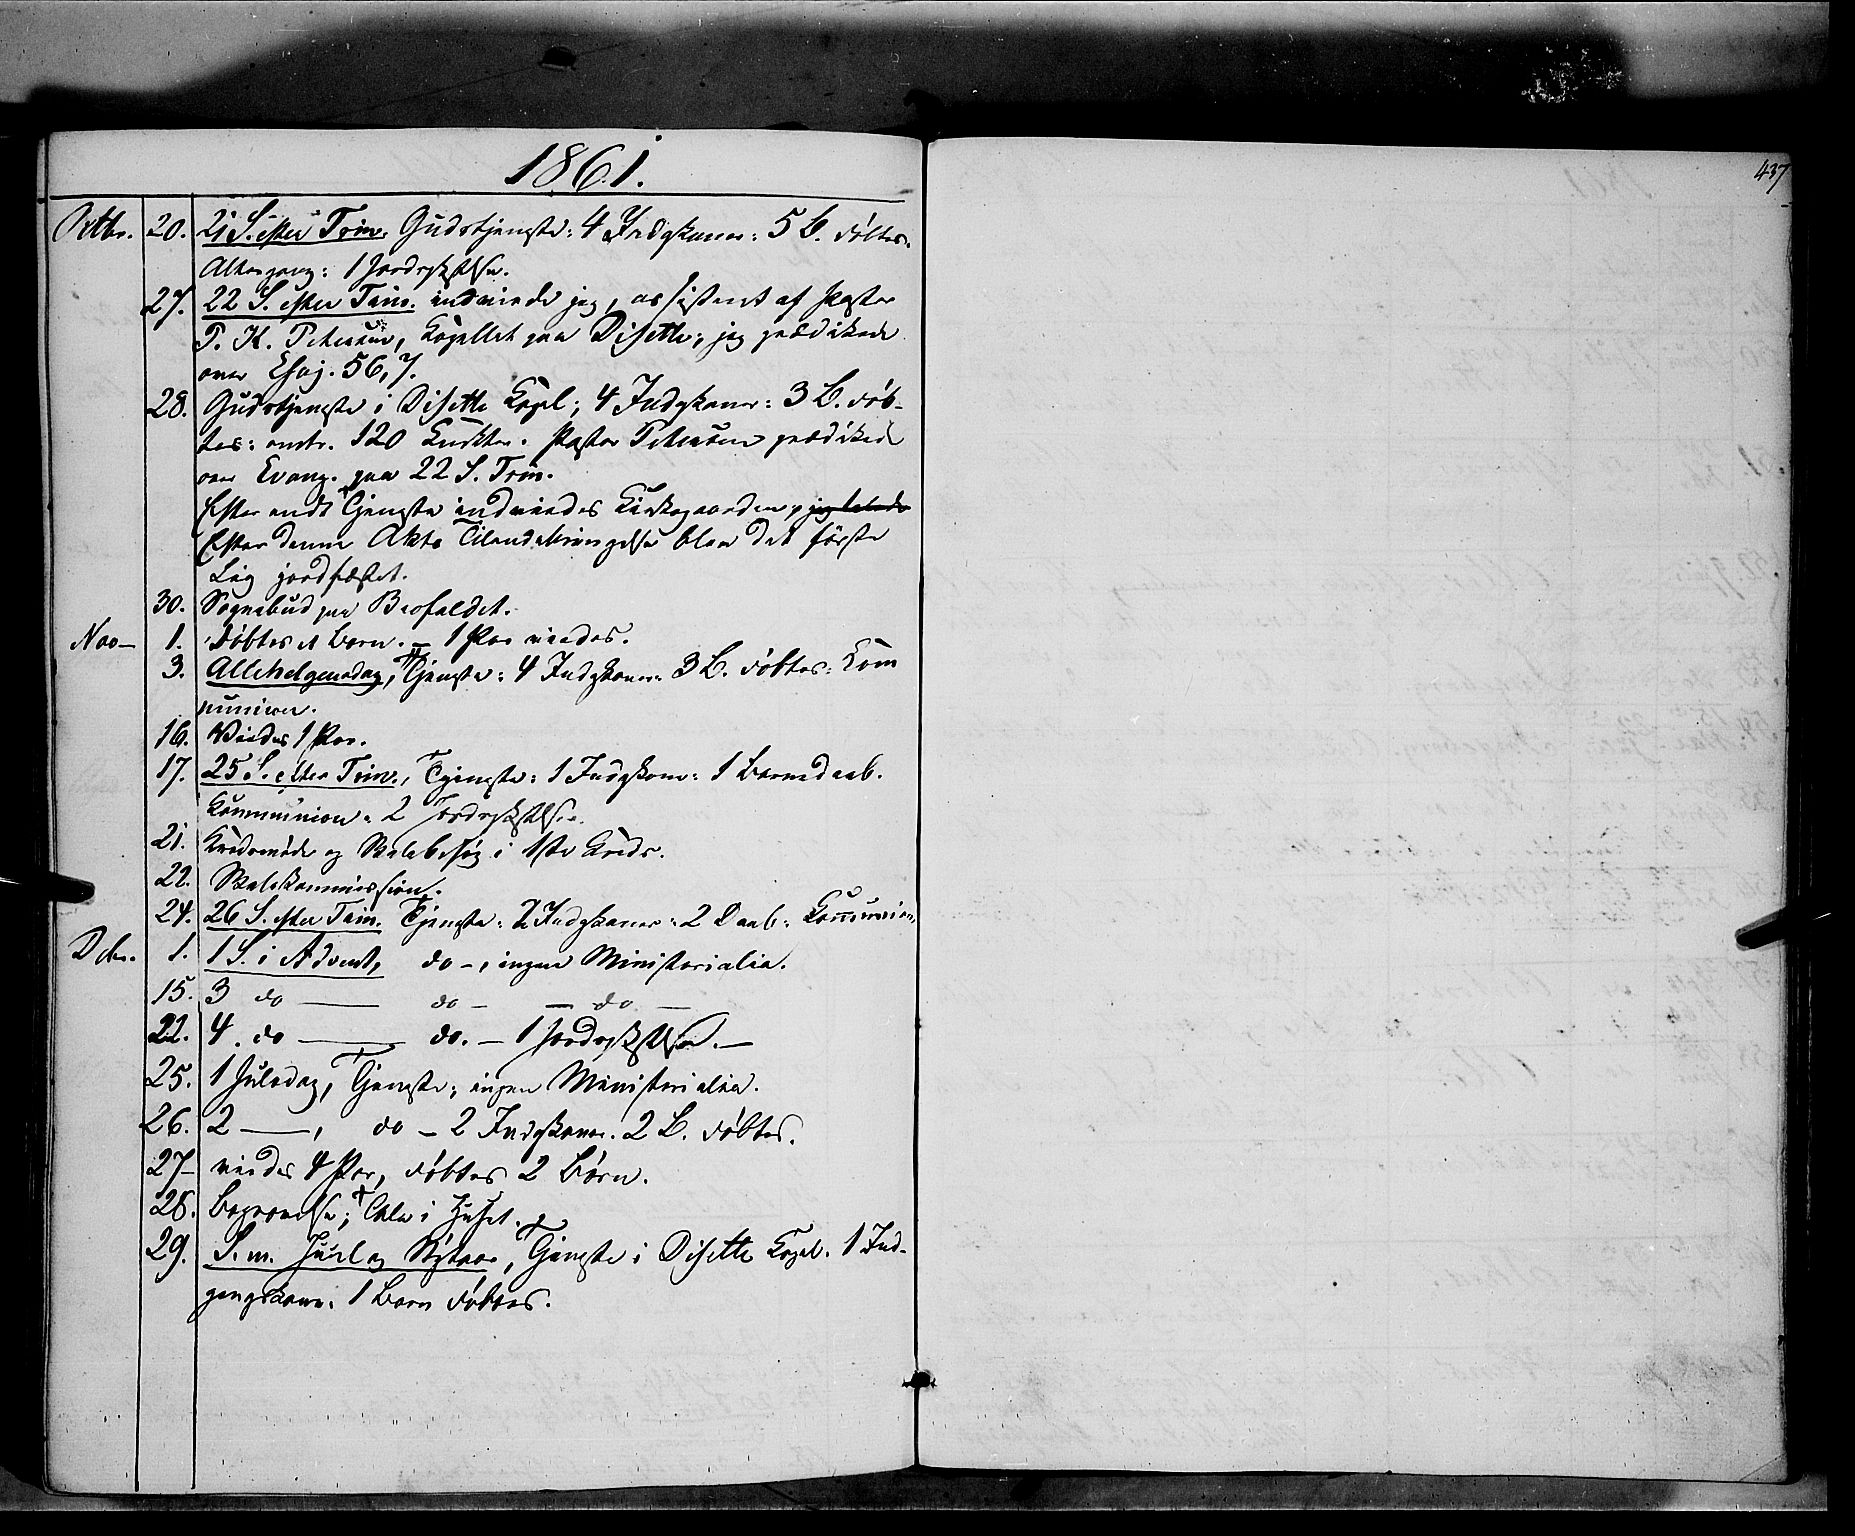 1861.
437
Octbr. 20. 21 S. efter Trin. Gudstjeneste: 4 Indgkoner: 5 B. døbtes.
Altergang: 1 Jordpkstelse.
27. 22 S. efter Trin. indviede jeg, assisteret af Pastor
P. K. Petersen, Kapellet paa Disette; jeg prædikede
over Esaj. 56,7.
28. Gudstjeneste i Disette Kapel; 4 Indgkoner: 3 B. døb-
tes: omtr. 120 Pastor Petersen prædikede
over Evang. paa 22 S. Trin.
Efter endt Tjeneste indviedes Kirkegaarden, jeg talede
Efter denne Akts Tilendebringelse blev det første
Lig jordfæstet.
30. Sognebud paa
Nov– 1. Døbtes et Barn. – 1 Par viedes.
3. Allehelgensdag, Tjeneste: 4 Indgkoner: 3 B. døbtes: Kom
munion.
16. Viedes 1 Par.
17. 25 S. efter Trin., Tjeneste: 1 Indgkone: 1 Barnedaab.
Kommunion. 2 Jordpkstelser.
21. Kredsmøde og Skolebesøg i 1ste Kreds.
22. Skolekommission.
24. 26 S. efter Trin. Tjeneste: 2 Indgkoner: 2 Daab: Kommunion.
Dcbr. 1. 1 S. i Advent, do –, ingen Ministerialia.
15. 3 do — do – — do —
22. 4. do — do. – 1 Jordpkstelse. –
25. 1 Juledag, Tjeneste; ingen Ministerialia.
26. 2 —, do – 2 Indgkoner. 2 B. døbtes.
27– viedes 4 Par, døbtes 2 Børn.
28. Begravelse; Tale i Huset.
29. S. m. Juul og Nytaar, Tjeneste i Disette Kapel. 1 Ind-
gangskone. 1 Barn døbtes.